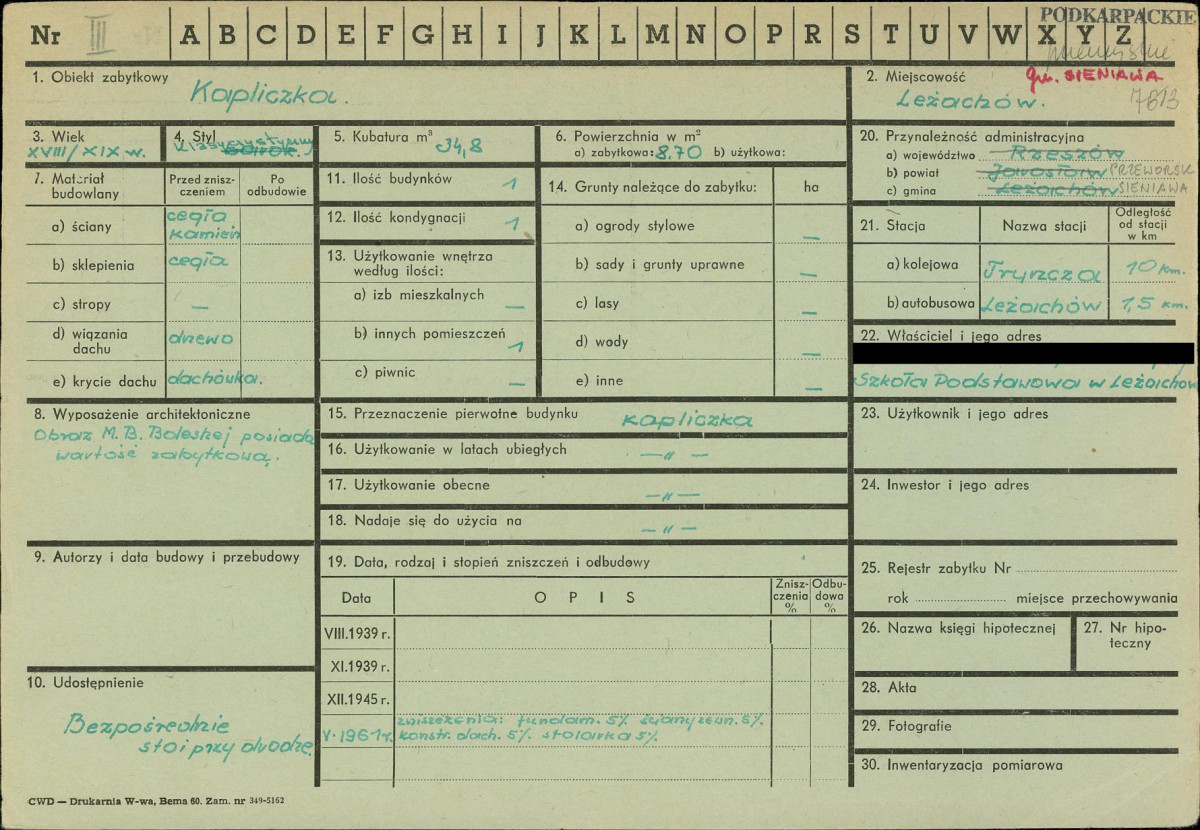 Nr III A B C D E F G H I J K L M N O P R S T U V W X Y Z
PODKARPACKIE
1. Obiekt zabytkowy
Kapliczka.
2. Miejscowość
gm. SIENIAWA
Leżachów.
7613
3. Wiek
XVIII/XIX w.
4. Styl
5. Kubatura m³
34,8
6. Powierzchnia w m²
a) zabytkowa: 8.70 b) użytkowa:
20. Przynależność administracyjna
a) województwo Rzeszów
b) powiat Jarosław PRZEWORSK
c) gmina Leżachów SIENIAWA
7. Materiał budowlany
Przed zniszczeniem
Po odbudowie
a) ściany cegła kamień
b) sklepienia cegła
c) stropy —
d) wiązania dachu drzewo
e) krycie dachu dachówka.
11. Ilość budynków 1
12. Ilość kondygnacji 1
13. Użytkowanie wnętrza według ilości:
a) izb mieszkalnych —
b) innych pomieszczeń 1
c) piwnic —
14. Grunty należące do zabytku: ha
a) ogrody stylowe —
b) sady i grunty uprawne —
c) lasy —
d) wody —
e) inne —
21. Stacja Nazwa stacji Odległość od stacji w km
a) kolejowa Tryncza 10 km.
b) autobusowa Leżachów 1,5 km.
22. Właściciel i jego adres
Szkoła Podstawowa w Leżachow
8. Wyposażenie architektoniczne
Obraz M.B. Boleskej posiada
wartość zabytkową.
15. Przeznaczenie pierwotne budynku kapliczka
16. Użytkowanie w latach ubiegłych —„—
17. Użytkowanie obecne —„—
18. Nadaje się do użycia na —„—
23. Użytkownik i jego adres
24. Inwestor i jego adres
9. Autorzy i data budowy i przebudowy
19. Data, rodzaj i stopień zniszczeń i odbudowy
Data OPIS Zniszczenia % Odbudowa %
VIII.1939 r.
XI.1939 r.
XII.1945 r.
V.1961 r.
zniszczenia: fundam. 5% ściany zewn. 5%.
konstr. dach. 5% stolarka 5%.
25. Rejestr zabytku Nr
rok miejsce przechowywania
26. Nazwa księgi hipotecznej
27. Nr hipoteczny
10. Udostępnienie
Bezpośrednie
stoi przy drodze
28. Akta
29. Fotografie
30. Inwentaryzacja pomiarowa
CWD — Drukarnia W-wa, Bema 60. Zam. nr 349-5162